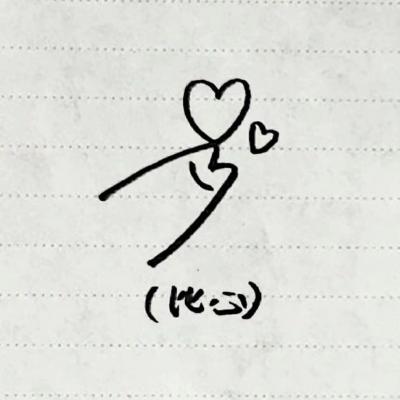 (比心)